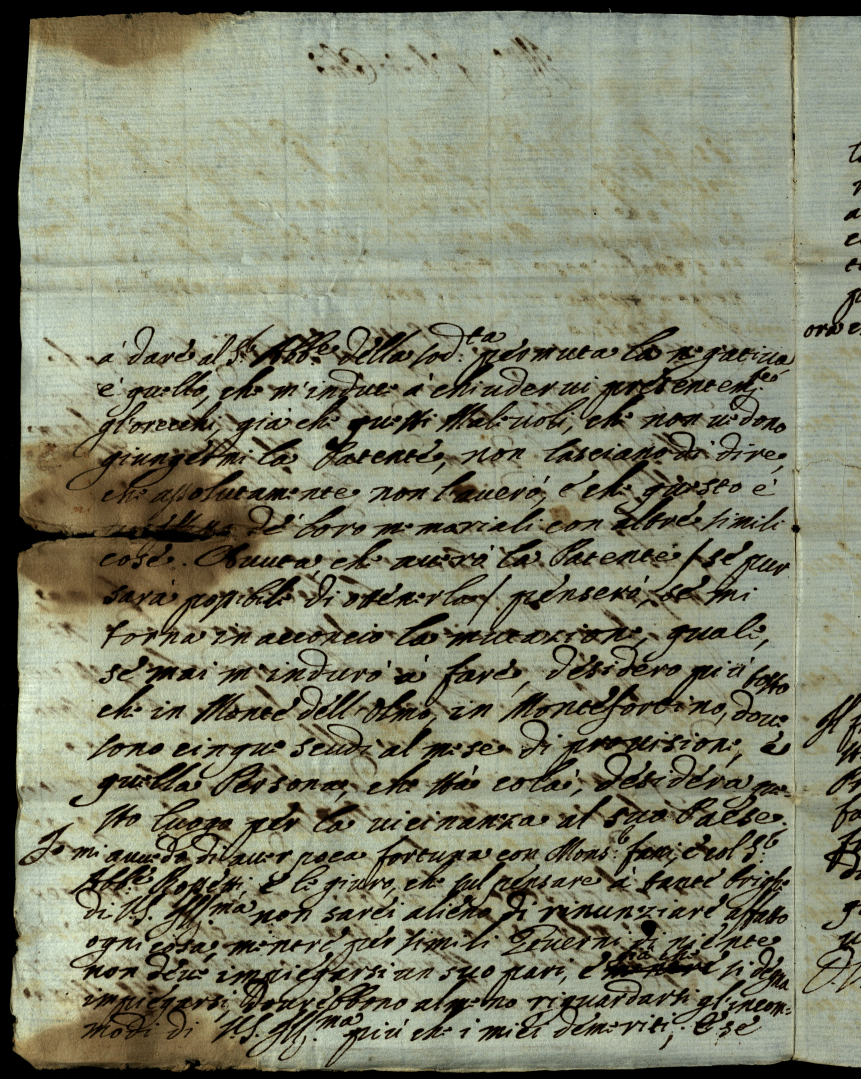 á dare al S.r Abb.e della sod.ta permuta la negativa
é quello, che m'induce á chiudervi presentem.te
gl'orecchi, già che questi Malevoli, che non vedono
giungermi la Patente, non lasciano di dire,
che assolutamente non l'averó, é che questo é
dé loro memoriali con altre simili
cose. Avuta, che averó la Patente / sé pur
sará possibile di ottenerla / penseró, sé mi
torna in acconcio la mutazione, quale,
sé mai m'induró á fare, desidero piú tosto
che in Monte dell'Olmo, in Montefortino, dove
sono cinque scudi al mese di provisione, é
quella Persona, che stá colá, desidera que
sto luogo per la vicinanza al suo Paese.
Io mi avvedo di aver poca fortuna con Mons.r é col S.r
Abb.e é le giuro, che sul pensare á tante brighe
di V.S. Ill.ma non sarei alieno di rinunziare affatto
ogni cosa, mentre per simili Governi di niente
non deve impiegarsi un suo pari, é si degna
impiegarsi dovrebbono almeno riguardarsi gl'incom=
modi di V.S. Ill.ma piú che i miei demeriti; E sé
ora